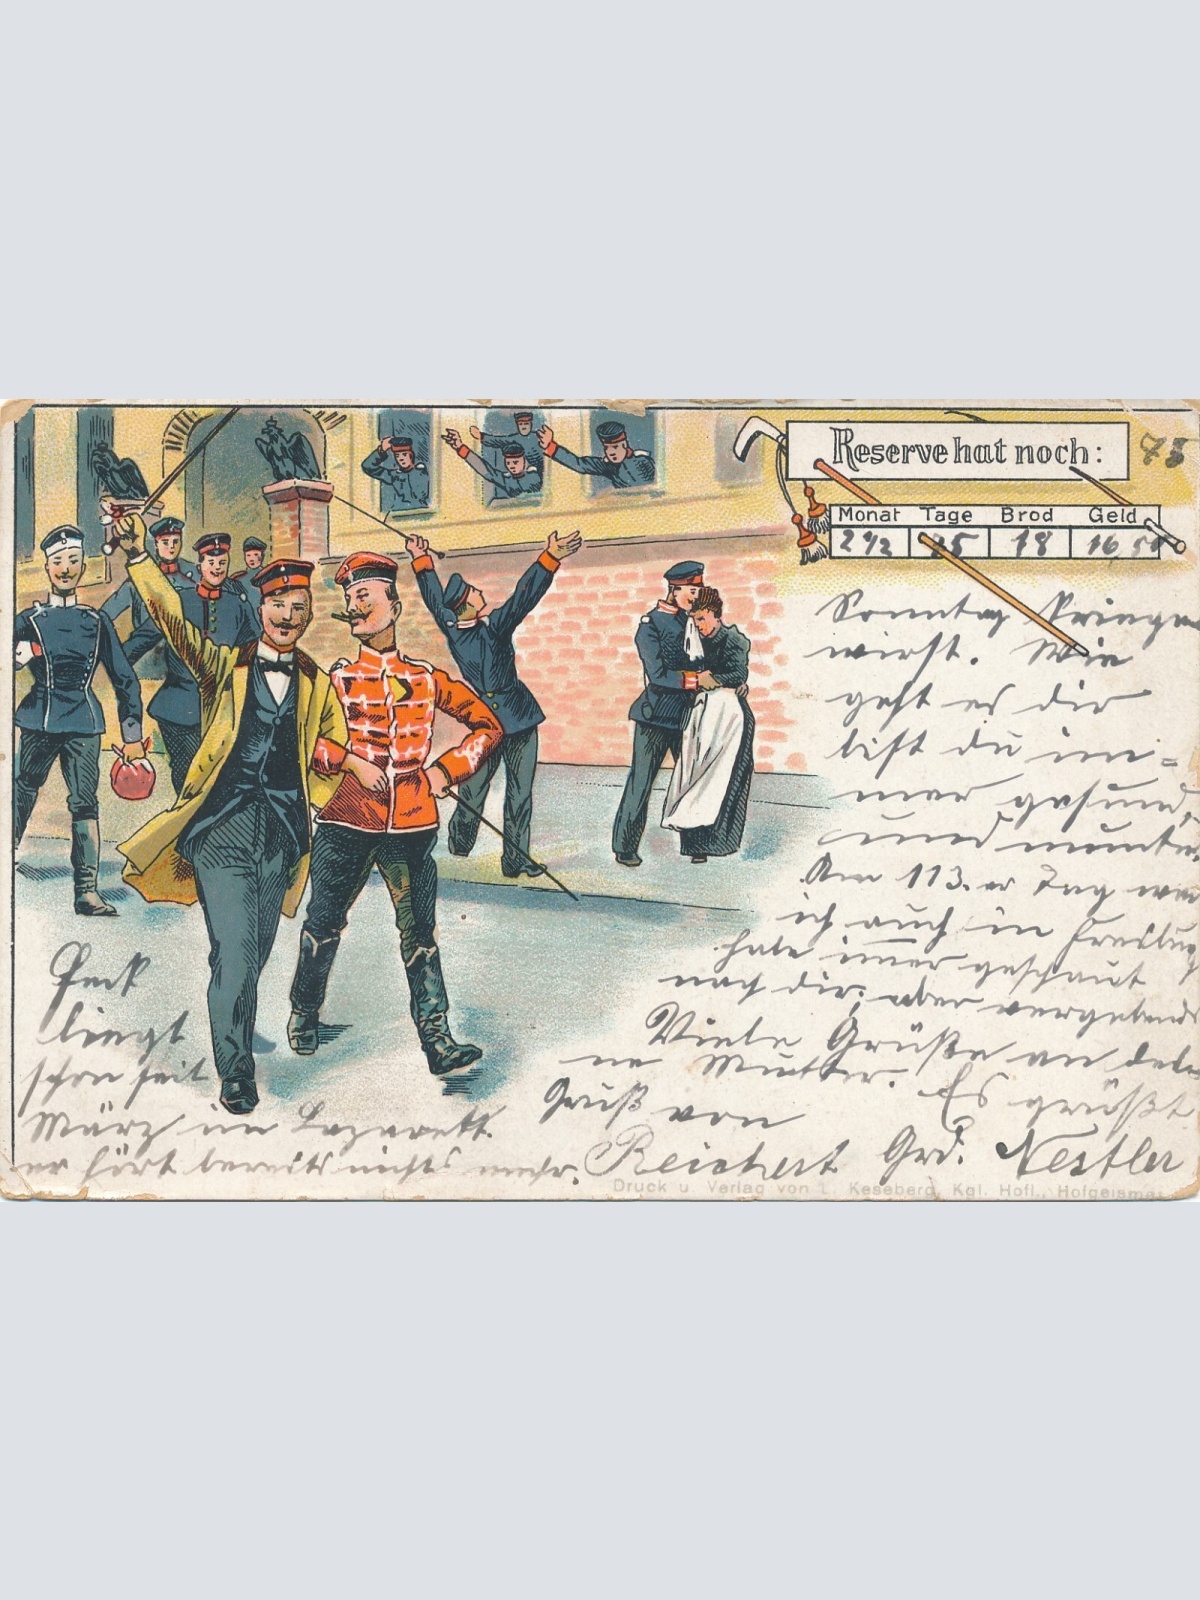 Reserve hat noch: 75
Monat Tage Brod Geld
2 1/2 25 18 16,50
Sonntag kriegen
wirst. Wie
geht es dir
bist du im=
mer gesund,
und munter.
Am 113. er Tag war
ich auch in Freiburg
habe immer geschaut
nach dir; aber vergebends
Viele Grüße an dei
ne Mutter. Es grüßt
Gruß von
Reichert Grd. Nestler
liegt
schon seit
März im Lazarett.
er hört bereits nichts mehr.
Druck u. Verlag von L. Keseberg, Kgl. Hofl., Hofgeismar